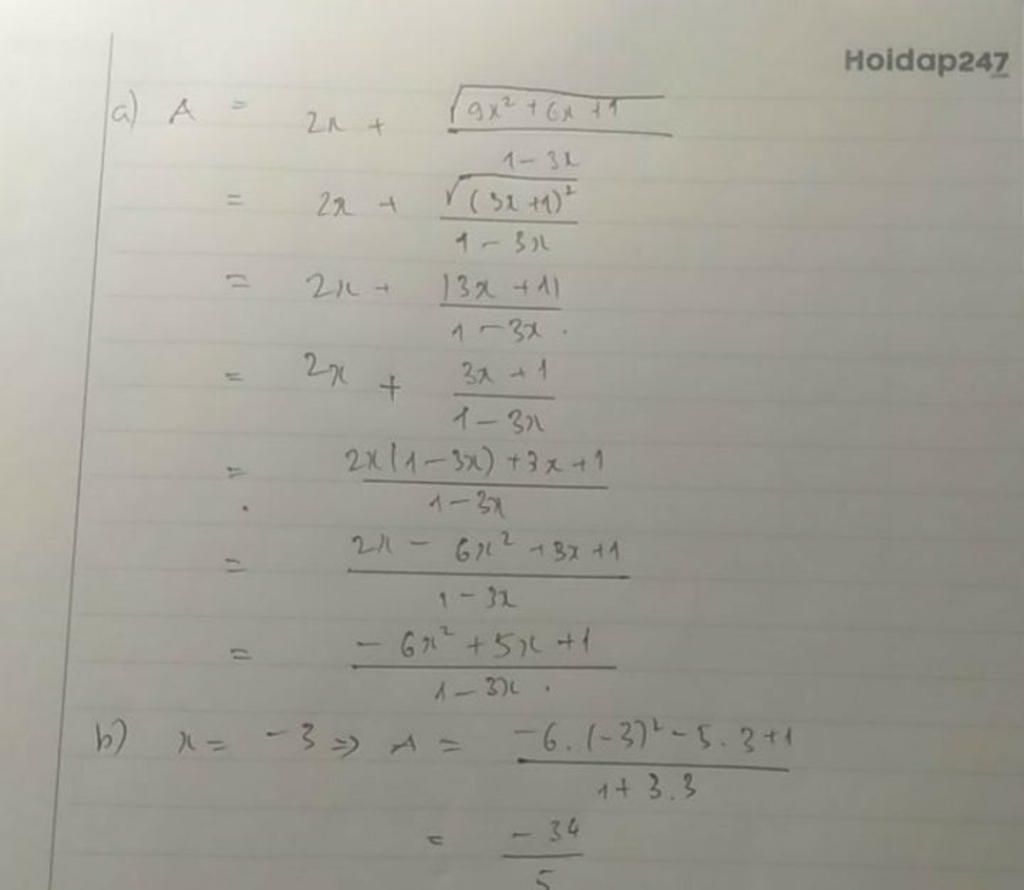 Hoidap247
a) A = 2x + √(9x² + 6x + 1) / (1 - 3x)
= 2x + √((3x + 1)²) / (1 - 3x)
= 2x + |3x + 1| / (1 - 3x).
= 2x + (3x + 1) / (1 - 3x)
= (2x(1 - 3x) + 3x + 1) / (1 - 3x)
= (2x - 6x² + 3x + 1) / (1 - 3x)
= (-6x² + 5x + 1) / (1 - 3x).
b) x = -3 => A = (-6.(-3)² - 5.3 + 1) / (1 + 3.3)
= -34 / 5